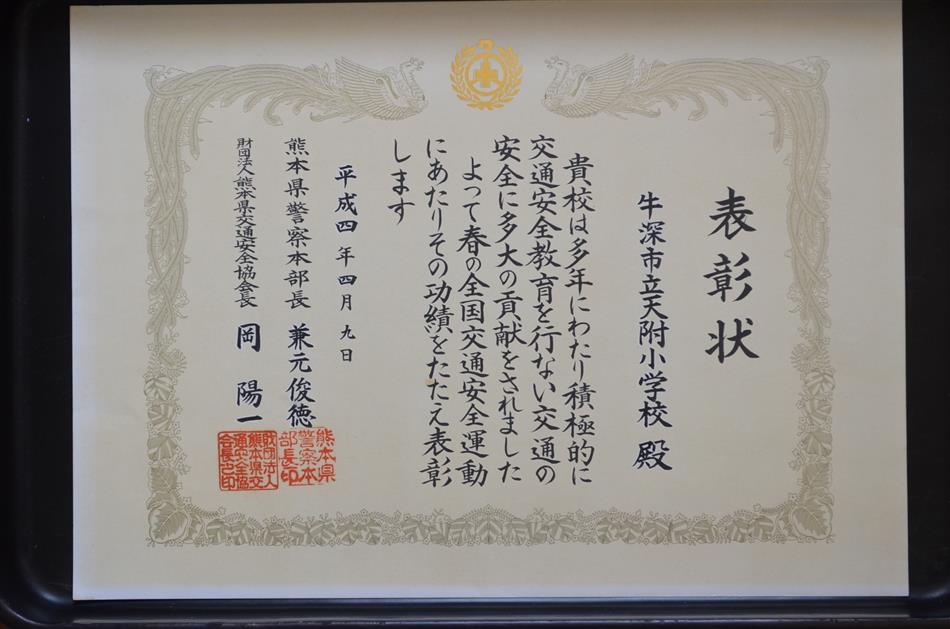 表彰状
牛深市立天附小学校 殿
貴校は多年にわたり積極的に
交通安全教育を行ない交通の
安全に多大の貢献をされました
よって春の全国交通安全運動
にあたりその功績をたたえ表彰
します
平成四年四月九日
熊本県警察本部長 兼元俊徳
財団法人熊本県交通安全協会長 岡 陽一
熊本県
警察本
部長印
財団法人
熊本県交
通安全協
会長之印